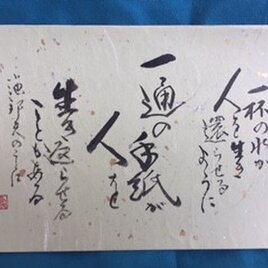 一杯の水が
人を生き
還らせるように
一通の手紙が
人を
生き返らせる
こともある
小池邦夫のことば